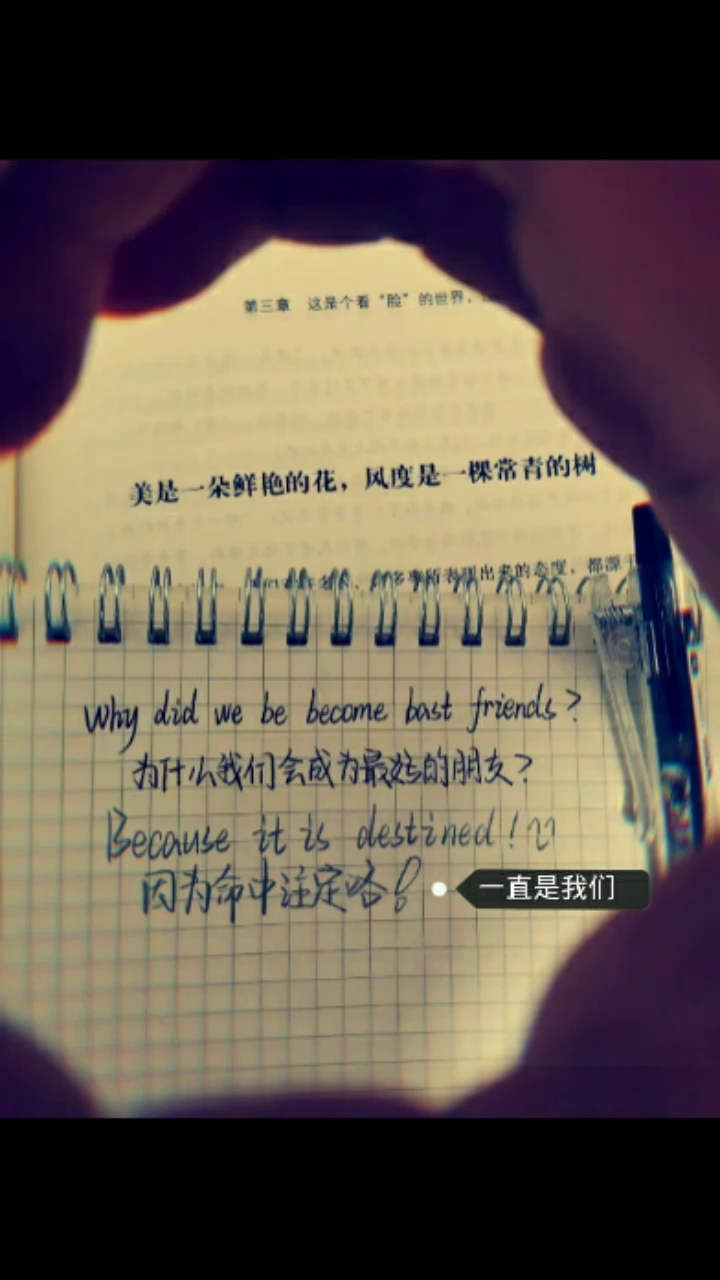 第三章 这是个看“脸”的世界，
美是一朵鲜艳的花，风度是一棵常青的树
所表现出来的态度，都源于
Why did we be become bast friends?
为什么我们会成为最好的朋友?
Because it is destined!
因为命中注定咯!
一直是我们